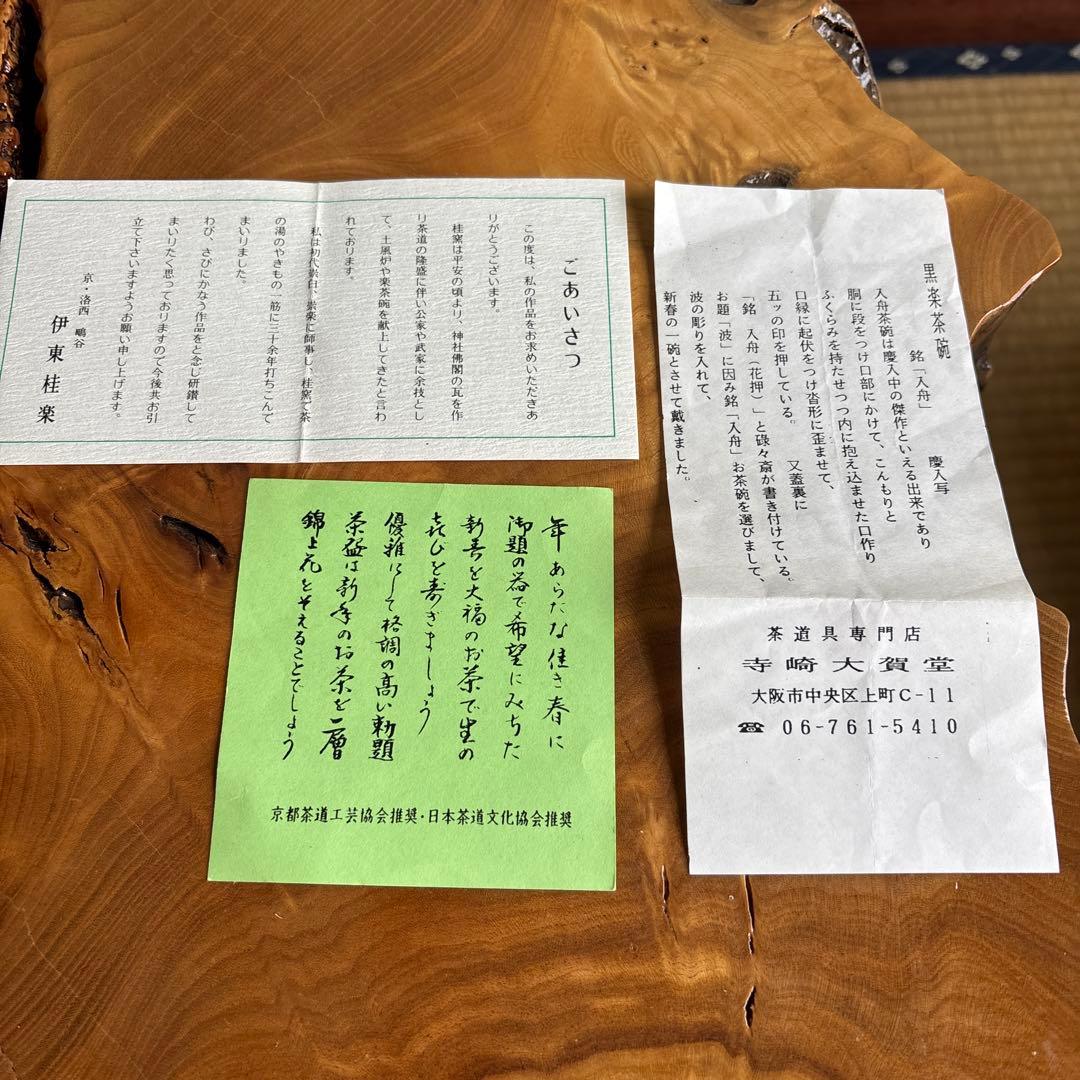 ごあいさつ
この度は、私の作品をお求めいただきあ
りがとうございます。
桂窯は平安の頃より、神社佛閣の瓦を作
り茶道の隆盛に伴い公家や武家に余技とし
て、土風炉や楽茶碗を献上してきたと言わ
れております。
私は初代崇白、崇楽に師事し、桂窯で茶
の湯のやきもの一筋に三十余年打ちこんで
まいりました。
わび、さびにかなう作品をと念じ研鑽して
まいりたく思っておりますので今後共お引
立て下さいますようお願い申し上げます。
京・洛西 鴫谷
伊東桂楽
黒楽茶碗
銘「入舟」 慶入写
入舟茶碗は慶入中の傑作といえる出来であり
胴に段をつけ口部にかけて、こんもりと
ふくらみを持たせつつ内に抱え込ませた口作り
口縁に起伏をつけ沓形に歪ませて、
五ッの印を押している。 又蓋裏に
「銘 入舟(花押)」と碌々斎が書き付けている。
お題「波」に因み銘「入舟」お茶碗を選びまして、
波の彫りを入れて、
新春の一碗とさせて戴きました。
茶道具専門店
寺崎大賀堂
大阪市中央区上町C-11
☎ 06-761-5410
年あらたな佳き春に
御題の器で希望にみちた
新春を大福のお茶で生の
喜びを寿ぎましょう
優雅にして格調の高い勅題
茶盌は新年のお茶を一層
錦上花をそえることでしょう
京都茶道工芸協会推奨・日本茶道文化協会推奨